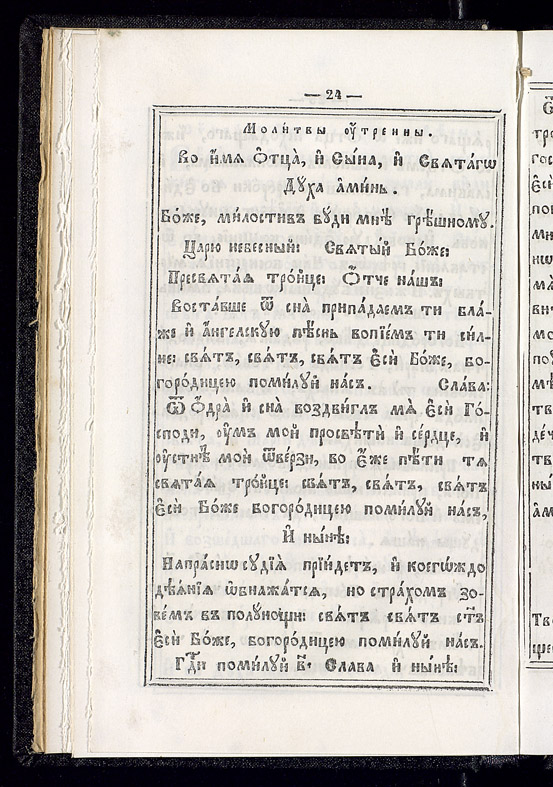 — 24 —
Моли́твы ᲂу҆́тренны.
Во и҆́мѧ Ѻ҆тца̀, и҆ Сы́на, и҆ Свѧта́гѡ
Дꙋ́ха а҆ми́нь.
Бо́же, ми́лостивъ бꙋ́ди мнѣ̀ грѣ́шномꙋ.
Царю̀ небесный: Свѧты́й Бо́же:
Пресвѧта́ѧ тро́йце: Ѻ҆́тче на́шъ:
Воста́вше ѿ сна̀ припа́даемъ ти бла́-
же и҆ а҆́нгелскꙋю пѣ́снь вопїе́мъ ти си́л-
не: свѧ́тъ, свѧ́тъ, свѧ́тъ є҆сѝ Бо́же, бо-
горо́дицею поми́лꙋй на́съ. Сла́ва:
Ѿ Ѻ҆дра̀ и҆ сна̀ воздви́глъ мѧ̀ є҆сѝ Го́-
споди, ᲂу҆́мъ мой просвѣтѝ и҆ се́рдце, и҆
ᲂу҆стнѣ̀ моѝ ѿве́рзи, во є҆́же пѣ́ти тѧ
свѧта́ѧ тро́йце: свѧ́тъ, свѧ́тъ, свѧ́тъ
є҆сѝ Бо́же богоро́дицею поми́лꙋй на́съ,
И҆ ны́нѣ:
Напра́снѡ сꙋдїѧ̀ прїи́детъ, и҆ коегѡ́ждо
дѣѧ́нїѧ ѡ҆бнажа́тсѧ, но стра́хомъ зо-
ве́мъ въ полꙋ́нощи: свѧ́тъ свѧ́тъ ст҃ъ
є҆сѝ Бо́же, богоро́дицею поми́лꙋй на́съ.
Гдⷭ҇и поми́лꙋй в҃і Слава и҆ ны́нѣ: